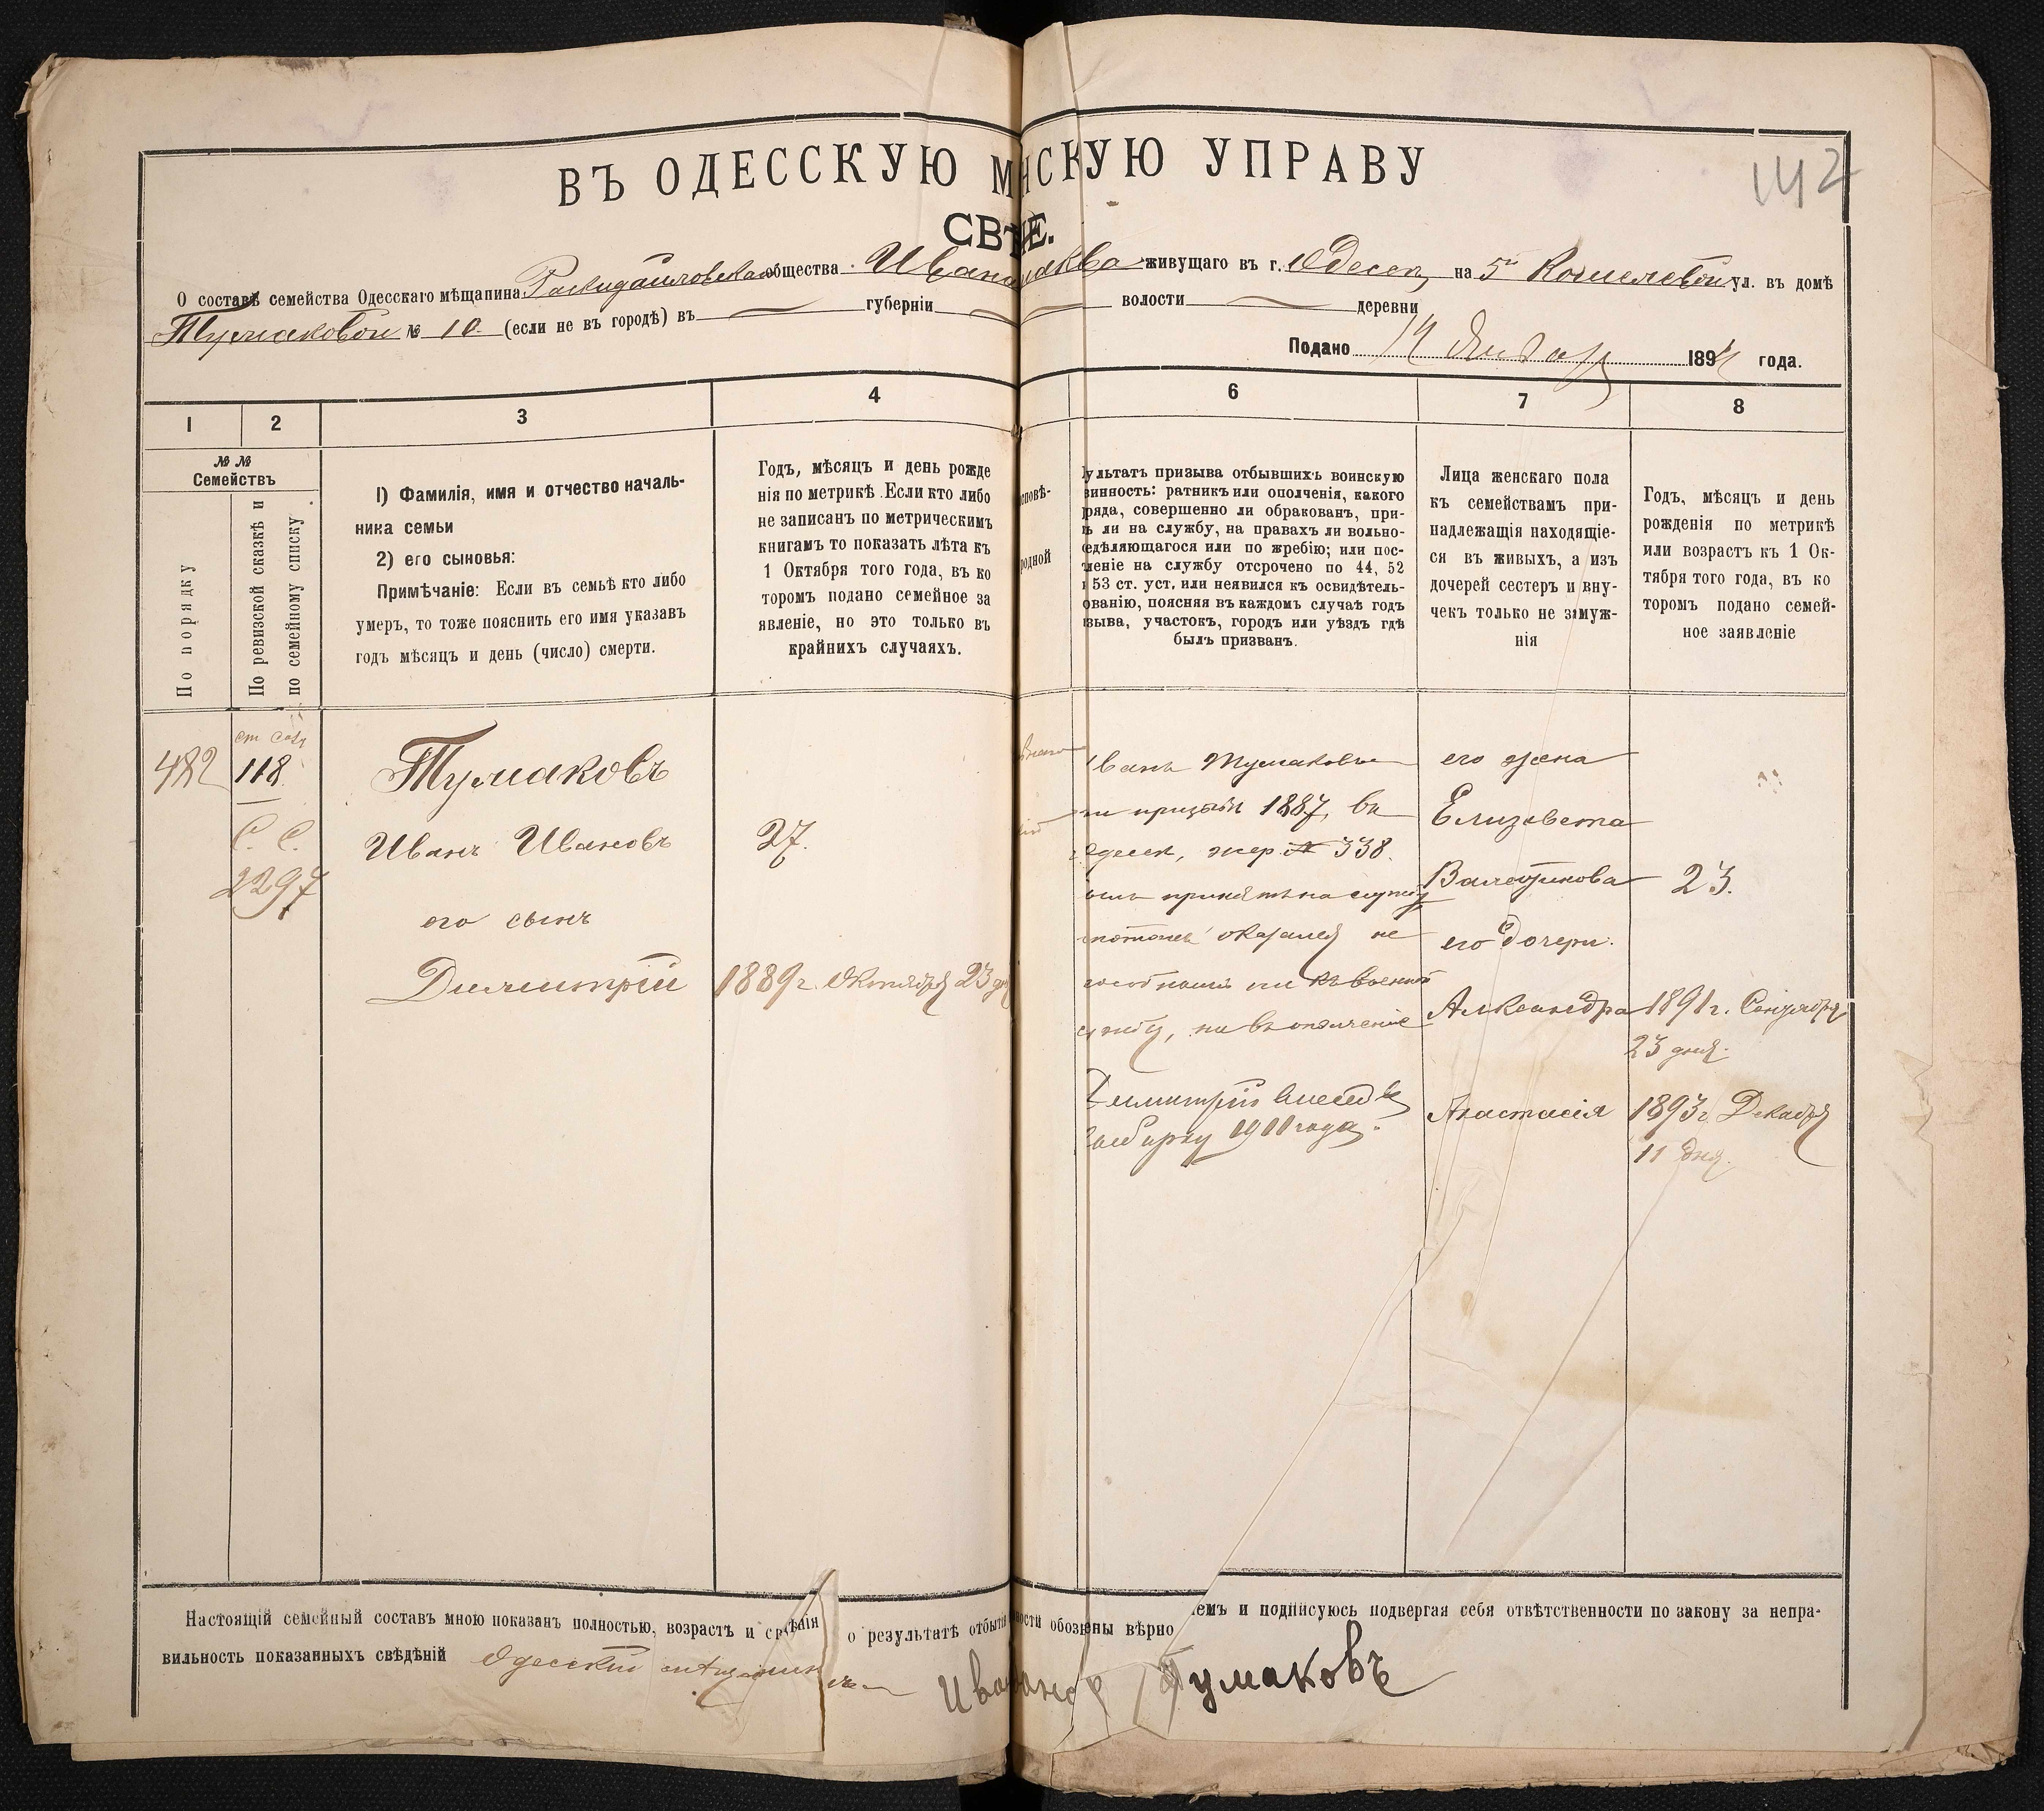 142
ВЪ ОДЕССКУЮ М НСКУЮ УПРАВУ
СВѢ Е.
О составѣ семейства Одесскаго мѣщанина Раскидайловскаго общества Ивана живущаго въ г. Одессѣ на 5й ул. въ домѣ
Тумаковой № 10 (если не въ городѣ) въ губерніи волости деревни
Подано 14 Января 1894 года.
1 2 3 4 6 7 8
№ № Семействъ
По порядку
По ревизской сказкѣ и по семейному списку
1) Фамилія, имя и отчество началь-
ника семьи
2) его сыновья:
Примѣчаніе: Если въ семьѣ кто либо
умеръ, то тоже пояснить его имя указавъ
годъ мѣсяцъ и день (число) смерти.
Годъ, мѣсяцъ и день рожде
нія по метрикѣ. Если кто либо
не записанъ по метрическимъ
книгамъ то показать лѣта къ
1 Октября того года, въ ко
торомъ подано семейное за
явленіе, но это только въ
крайнихъ случаяхъ.
исповѣ-
родной
ультатъ призыва отбывшихъ воинскую
винность: ратникъ или ополченія, какого
ряда, совершенно ли обракованъ, при-
ъ ли на службу, на правахъ ли вольно-
едѣляющагося или по жребію; или пос-
леніе на службу отсрочено по 44, 52
и 53 ст. уст. или неявился къ освидѣтель-
ованію, поясняя въ каждомъ случаѣ годъ
изыва, участокъ, городъ или уѣздъ гдѣ
былъ призванъ.
Лица женскаго пола
къ семействамъ при-
надлежащія находящіе-
ся въ живыхъ, а изъ
дочерей сестеръ и вну-
чекъ только не замуж-
нія
Годъ, мѣсяцъ и день
рожденія по метрикѣ
или возрастъ къ 1 Ок-
тября того года, въ ко
торомъ подано семей-
ное заявленіе
482
118
С. С.
2297
Тумаковъ
Иванъ Ивановъ 27.
его сынъ
Димитрій 1889 г. Октября 23 дн
Иванъ Тумаковъ
призывѣ 1887, въ
Одессѣ, жер. № 338.
былъ принятъ на службу
потомъ оказался не
способнымъ ни къ военной
службѣ, ни въ ополченіе
Димитрій внесенъ въ
выборку 1911 года.
его жена
Елизавета
Валентинова 23.
его дочери.
Александра 1891 г. Сентября
23 дня.
Анастасія 1893 г. Декабря
11 дня.
Настоящій семейный составъ мною показанъ полностью, возрастъ и свѣдѣнія о результатѣ отбытія ности обозн ены вѣрно чемъ и подписуюсь подвергая себя отвѣтственности по закону за непра-
вильность показанныхъ свѣдѣній Одесскій мѣщанинъ Иванъ Тумаковъ